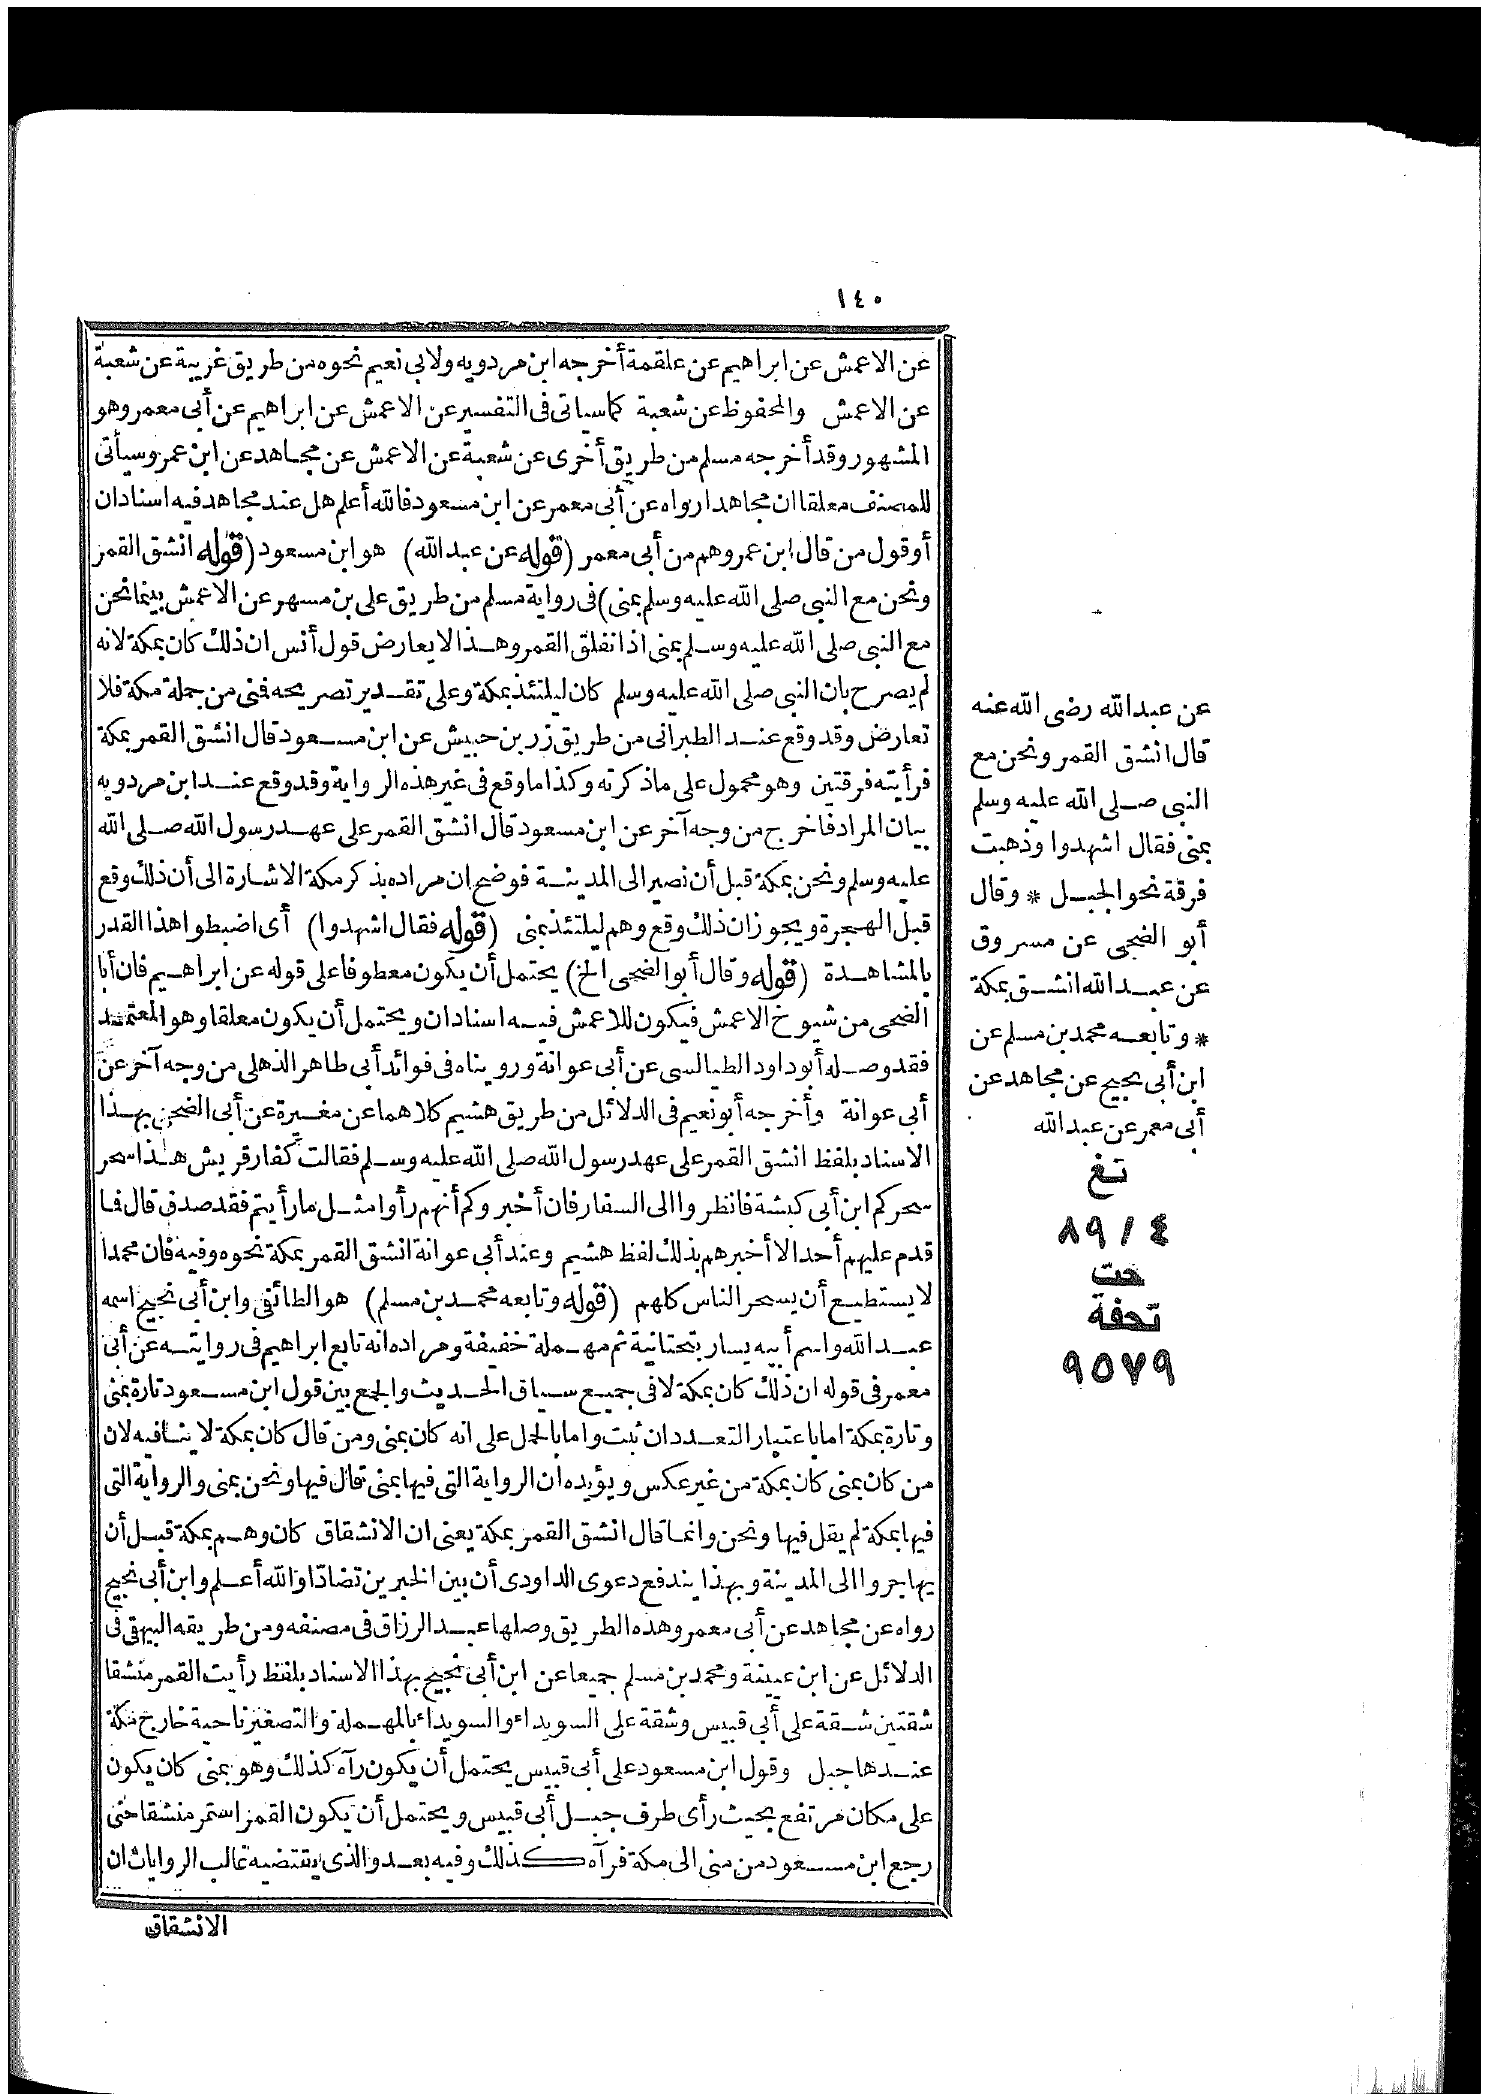 ١٤٠
عن الاعمش عن ابراهيم عن علقمة أخرجه ابن مردويه ولابى نعيم نحوه من طريق غريبة عن شعبة
عن الاعمش والمحفوظ عن شعبة كماسياتى فى التفسير عن الاعمش عن ابراهيم عن أبى معمر وهو
المشهور وقد أخرجه مسلم من طريق أخرى عن شعبة عن الاعمش عن مجاهد عن ابن عمر وسيأتى
للمصنف معلقا ان مجاهدا رواه عن أبى معمر عن ابن مسعود فالله أعلم هل عند مجاهد فيه اسنادان
أو قول من قال ابن عمر وهم من أبى معمر (قوله عن عبدالله) هو ابن مسعود (قوله انشق القمر
ونحن مع النبى صلى الله عليه وسلم بمنى) فى رواية مسلم من طريق على بن مسهر عن الاعمش بينما نحن
مع النبى صلى الله عليه وسلم بمنى اذا نفلق القمر وهذا لا يعارض قول أنس ان ذلك كان بمكة لانه
لم يصرح بان النبى صلى الله عليه وسلم كان ليلتئذ بمكة وعلى تقدير تصريحه فمنى من جملة مكة فلا
تعارض وقد وقع عند الطبرانى من طريق زر بن حبيش عن ابن مسعود قال انشق القمر بمكة
فرأيته فرقتين وهو محمول على ماذكرته وكذا ما وقع فى غير هذه الرواية وقد وقع عند ابن مردويه
بيان المراد فاخرج من وجه آخر عن ابن مسعود قال انشق القمر على عهد رسول الله صلى الله
عليه وسلم ونحن بمكة قبل أن نصير الى المدينة فوضح ان مراده بذكر مكة الاشارة الى أن ذلك وقع
قبل الهجرة ويجوز ان ذلك وقع وهم ليلتئذ بمنى (قوله فقال اشهدوا) أى اضبطوا هذا القدر
بالمشاهدة (قوله وقال أبو الضحى الخ) يحتمل أن يكون معطوفا على قوله عن ابراهيم فان أبا
الضحى من شيوخ الاعمش فيكون للاعمش فيه اسنادان ويحتمل أن يكون معلقا وهو المعتمد
فقد وصله أبو داود الطيالسى عن أبى عوانة ورويناه فى فوائد أبى طاهر الذهلى من وجه آخر عن
أبى عوانة وأخرجه أبو نعيم فى الدلائل من طريق هشيم كلاهما عن مغيرة عن أبى الضحى بهذا
الاسناد بلفظ انشق القمر على عهد رسول الله صلى الله عليه وسلم فقالت كفار قريش هذا سحر
سحركم ابن أبى كبشة فانظروا الى السفار فان أخبروكم أنهم رأوا مثل ما رأيتم فقد صدق قال فما
قدم عليهم أحد الا أخبرهم بذلك لفظ هشيم وعند أبى عوانة انشق القمر بمكة نحوه وفيه فان محمدا
لا يستطيع أن يسحر الناس كلهم (قوله وتابعه محمد بن مسلم) هو الطائفى وابن أبى نجيح اسمه
عبدالله واسم أبيه يسار بتحتانية ثم مهملة خفيفة ومراده انه تابع ابراهيم فى روايته عن أبى
معمر فى قوله ان ذلك كان بمكة لا فى جميع سياق الحديث والجمع بين قول ابن مسعود تارة بمنى
وتارة بمكة اما باعتبار التعدد ان ثبت واما بالحمل على انه كان بمنى ومن قال كان بمكة لا ينافيه لان
من كان بمنى كان بمكة من غير عكس ويؤيده ان الرواية التى فيها بمنى قال فيها ونحن بمنى والرواية التى
فيها بمكة لم يقل فيها ونحن وانما قال انشق القمر بمكة يعنى ان الانشقاق كان وهم بمكة قبل أن
يهاجروا الى المدينة وبهذا يندفع دعوى الداودى أن بين الخبرين تضادّا والله أعلم وابن أبى نجيح
رواه عن مجاهد عن أبى معمر وهذه الطريق وصلها عبد الرزاق فى مصنفه ومن طريقه البيهقى فى
الدلائل عن ابن عيينة ومحمد بن مسلم جميعا عن ابن أبى نجيح بهذا الاسناد بلفظ رأيت القمر منشقا
شقتين شقة على أبى قبيس وشقة على السويداء والسويداء بالمهملة والتصغير ناحية خارج مكة
عندها جبل وقول ابن مسعود على أبى قبيس يحتمل أن يكون رآه كذلك وهو بمنى كان يكون
على مكان مرتفع بحيث رأى طرف جبل أبى قبيس ويحتمل أن يكون القمر استمر منشقا حتى
رجع ابن مسعود من منى الى مكة فرآه كذلك وفيه بعد والذى يقتضيه غالب الروايات ان
الانشقاق
عن عبدالله رضى الله عنه
قال انشق القمر ونحن مع
النبى صلى الله عليه وسلم
بمنى فقال اشهدوا وذهبت
فرقة نحو الجبل * وقال
أبو الضحى عن مسروق
عن عبدالله انشق بمكة
* وتابعه محمد بن مسلم عن
ابن أبى نجيح عن مجاهد عن
أبى معمر عن عبدالله
تغ
٨٩/٤
تحفة
٩٥٧٩